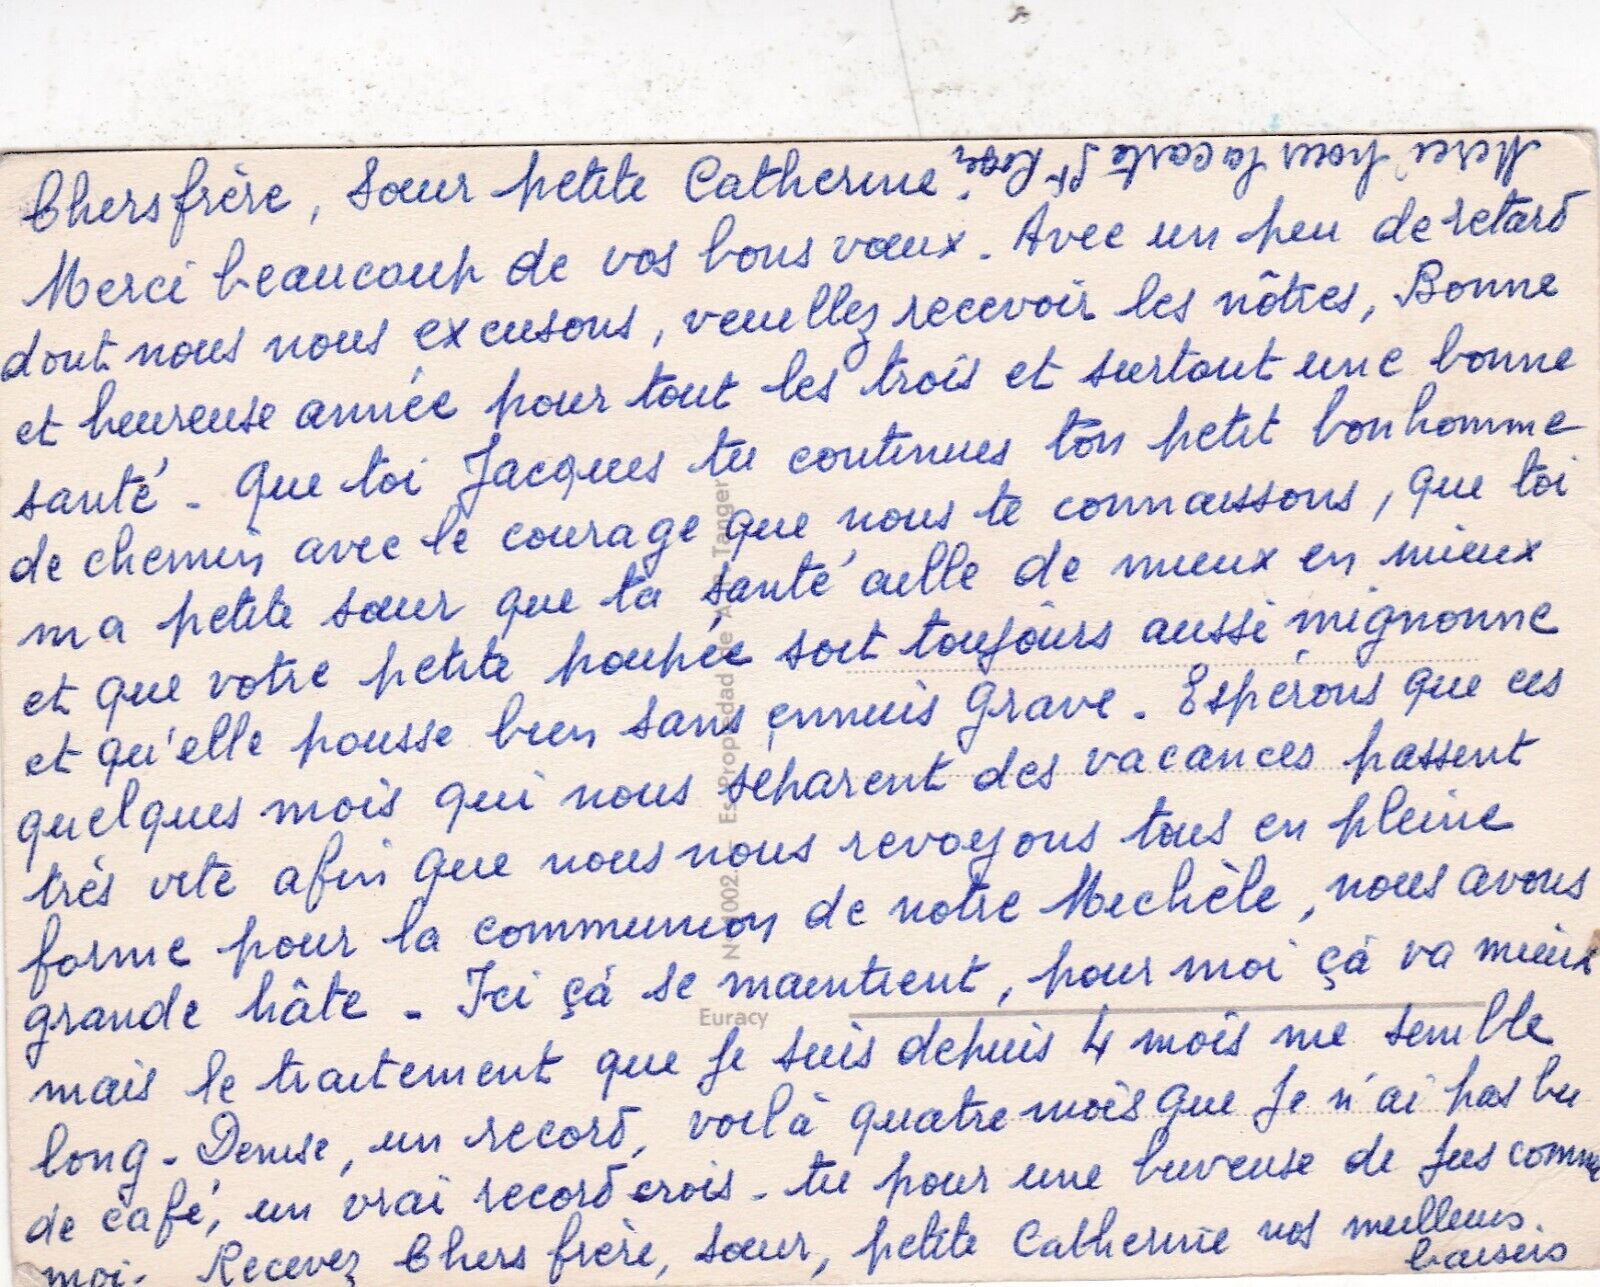 Chers frère, Sœur petite Catherine.
Merci pour la carte St
Merci beaucoup de vos bons vœux. Avec un peu de retard
dont nous nous excusons, veuillez recevoir les nôtres, Bonne
et heureuse année pour tout les trois et surtout une bonne
santé - Que toi Jacques tu continues ton petit bonhomme
de chemin avec le courage que nous te connaissons, que toi
ma petite sœur que ta santé aille de mieux en mieux
et que votre petite poupée soit toujours aussi mignonne
et qu'elle pousse bien sans ennuis grave. Espérons que ces
quelques mois qui nous séparent des vacances passent
très vite afin que nous nous revoyons tous en pleine
forme pour la communion de notre Michèle, nous avons
grande hâte - Ici çà se maintient, pour moi çà va mieux
mais le traitement que je suis depuis 4 mois me semble
long - Denise, un record, voilà quatre mois que je n'ai pas bu
de café, un vrai record crois-tu pour une buveuse de jus comme
moi. Recevez Chers frère, sœur, petite Catherine nos meilleurs
baisers
Es Propiedad de
Tanger
Euracy